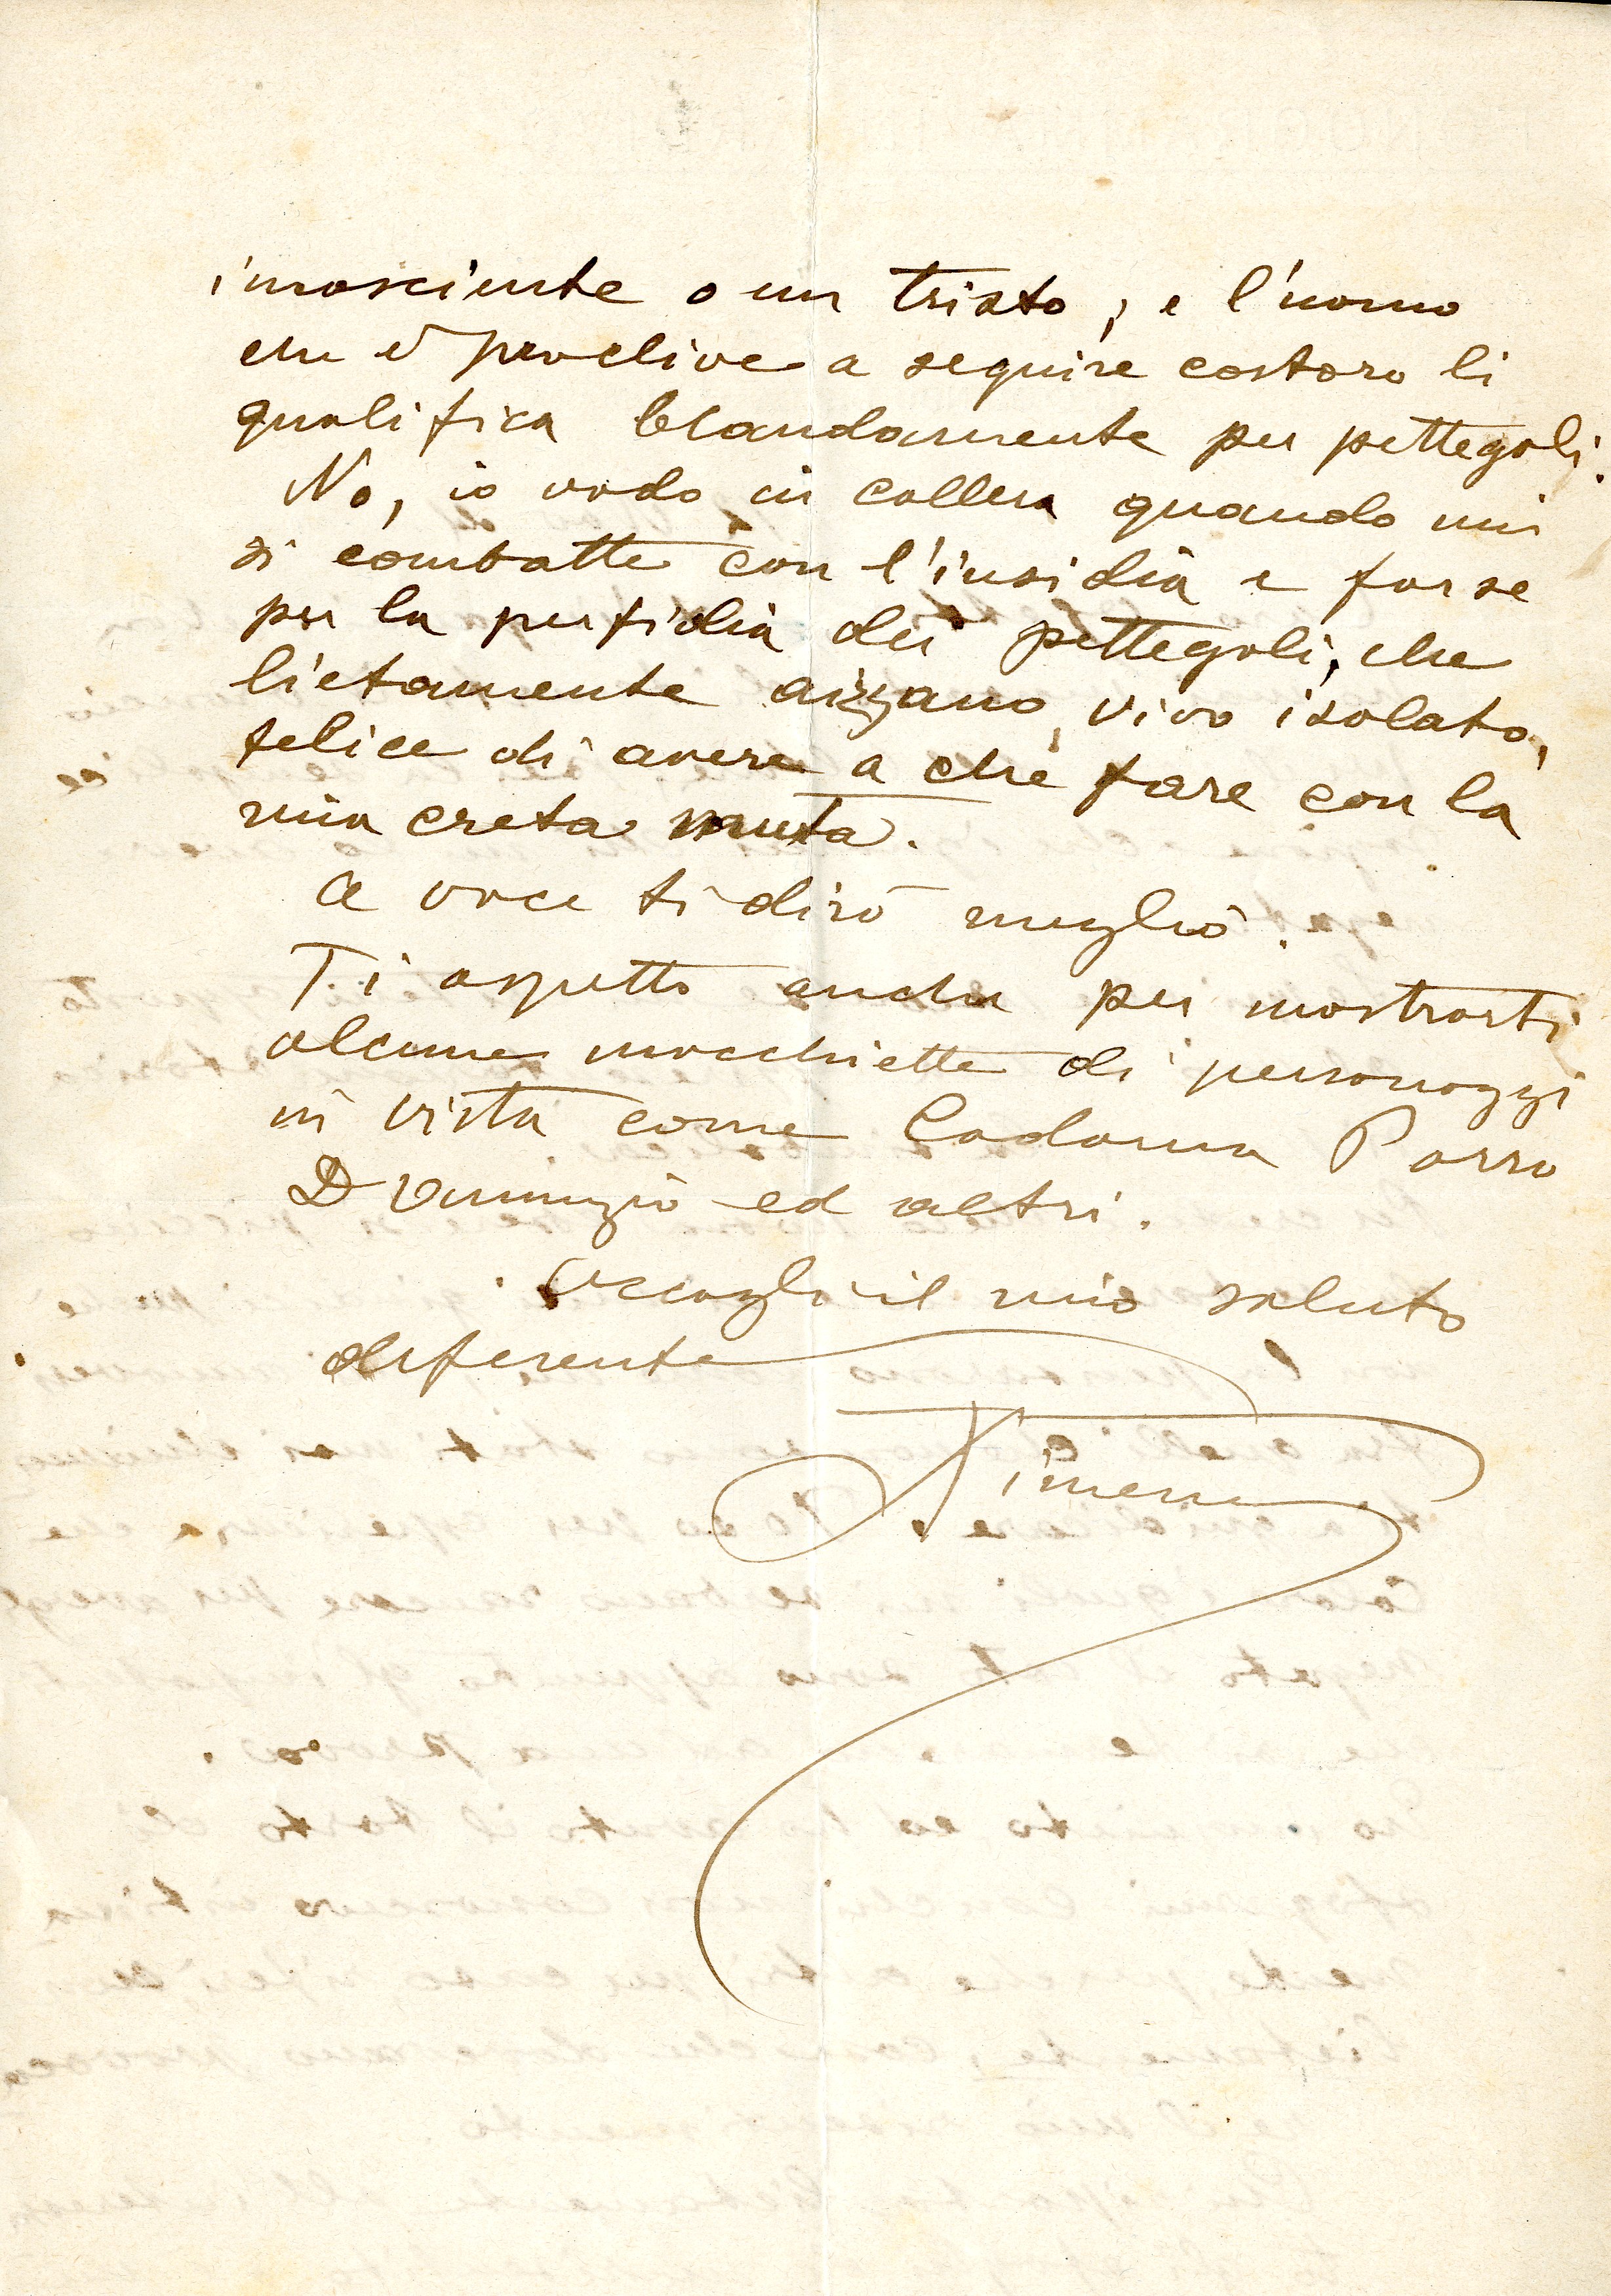 incosciente o un tristo, e l'uomo
che è proclive a seguire costoro li
qualifica blandamente per pettegoli.
No, io vado in collera quando mi
si combatte con l'insidia e forse
per la perfidia dei pettegoli, che
lietamente aizzano, vivo isolato,
felice di avere a che fare con la
mia creta muta.
A voce ti dirò meglio.
Ti aspetto anche per mostrarti
alcune macchiette di personaggi
in vista come Cadorna Porro
D'Annunzio ed altri.
Accogli il mio saluto
deferente
Ximenes